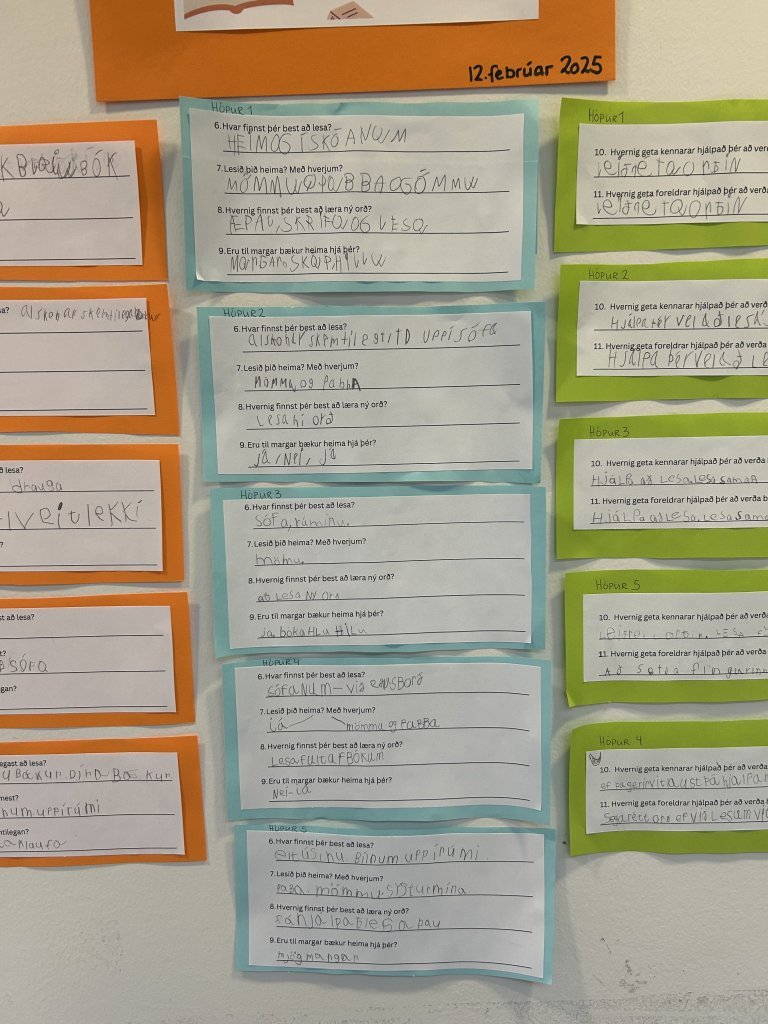 12.febrúar 2025
KBÓK
lsa? alskonar skemtilegarbækur
ð lesa?
drauga
HVEITLEKKI
st að lesa?
SÓFA
egan?
egast að lesa?
BÆKUR. DÝRA-BÆKUR.
mest?
num.uppírúmi
ntilegan?
HÓPUR 1
6. Hvar finnst þér best að lesa?
HEIMOG ÍSKÓANUM
7. Lesið þið heima? Með hverjum?
MÖMMU,PABBAOGÖMMU
8. Hvernig finnst þér best að læra ný orð?
ÆPAU,SKRIFA,OG LESA
9. Eru til margar bækur heima hjá þér?
HÓPUR 2
6. Hvar finnst þér best að lesa?
alskonar skemtilegt,TD uppísófa
7. Lesið þið heima? Með hverjum?
MÖMMA,og PabbA
8. Hvernig finnst þér best að læra ný orð?
Lesaní orð
9. Eru til margar bækur heima hjá þér?
já, Nei, já
HÓPUR 3
6. Hvar finnst þér best að lesa?
SÓFa,rúminu.
7. Lesið þið heima? Með hverjum?
mömu.
8. Hvernig finnst þér best að læra ný orð?
að Lesa Ný orð
9. Eru til margar bækur heima hjá þér?
já bókaHLu HiLu
HÓPUR 4
6. Hvar finnst þér best að lesa?
SÓFANUM-við eLHÚSBORÐ
7. Lesið þið heima? Með hverjum?
já mömmu og PABBA
8. Hvernig finnst þér best að læra ný orð?
LesafuLtafBÓKUM
9. Eru til margar bækur heima hjá þér?
Nei-já
HÓPUR 5
6. Hvar finnst þér best að lesa?
BíLnum uppírúmi
7. Lesið þið heima? Með hverjum?
PaBa. mömmu.systurmína
8. Hvernig finnst þér best að læra ný orð?
9. Eru til margar bækur heima hjá þér?
mjög margar
HÓPUR 1
10. Hvernig geta kennarar hjálpað þér að verða
LEIÐRETAORÐIN
11. Hvernig geta foreldrar hjálpað þér að verða
LEIÐRETAORÐIN
HÓPUR 2
10. Hvernig geta kennarar hjálpað þér að verða
11. Hvernig geta foreldrar hjálpað þér að verða
HJálpa þér við
HÓPUR 3
10. Hvernig geta kennarar hjálpað þér að verða
HJáLPa að Lesa,Lesa saman
11. Hvernig geta foreldrar hjálpað þér að verða b
HJáLPa að Lesa,Lesa sama
HÓPUR 5
10. Hvernig geta kennarar hjálpað þér að verða
11. Hvernig geta foreldrar hjálpað þér að verða
AÐ Setja fingurinn
HÓPUR 4
10. Hvernig geta kennarar hjálpað þér að verða
11. Hvernig geta foreldrar hjálpað þér að verða
Segarétt orð ef við Lesum